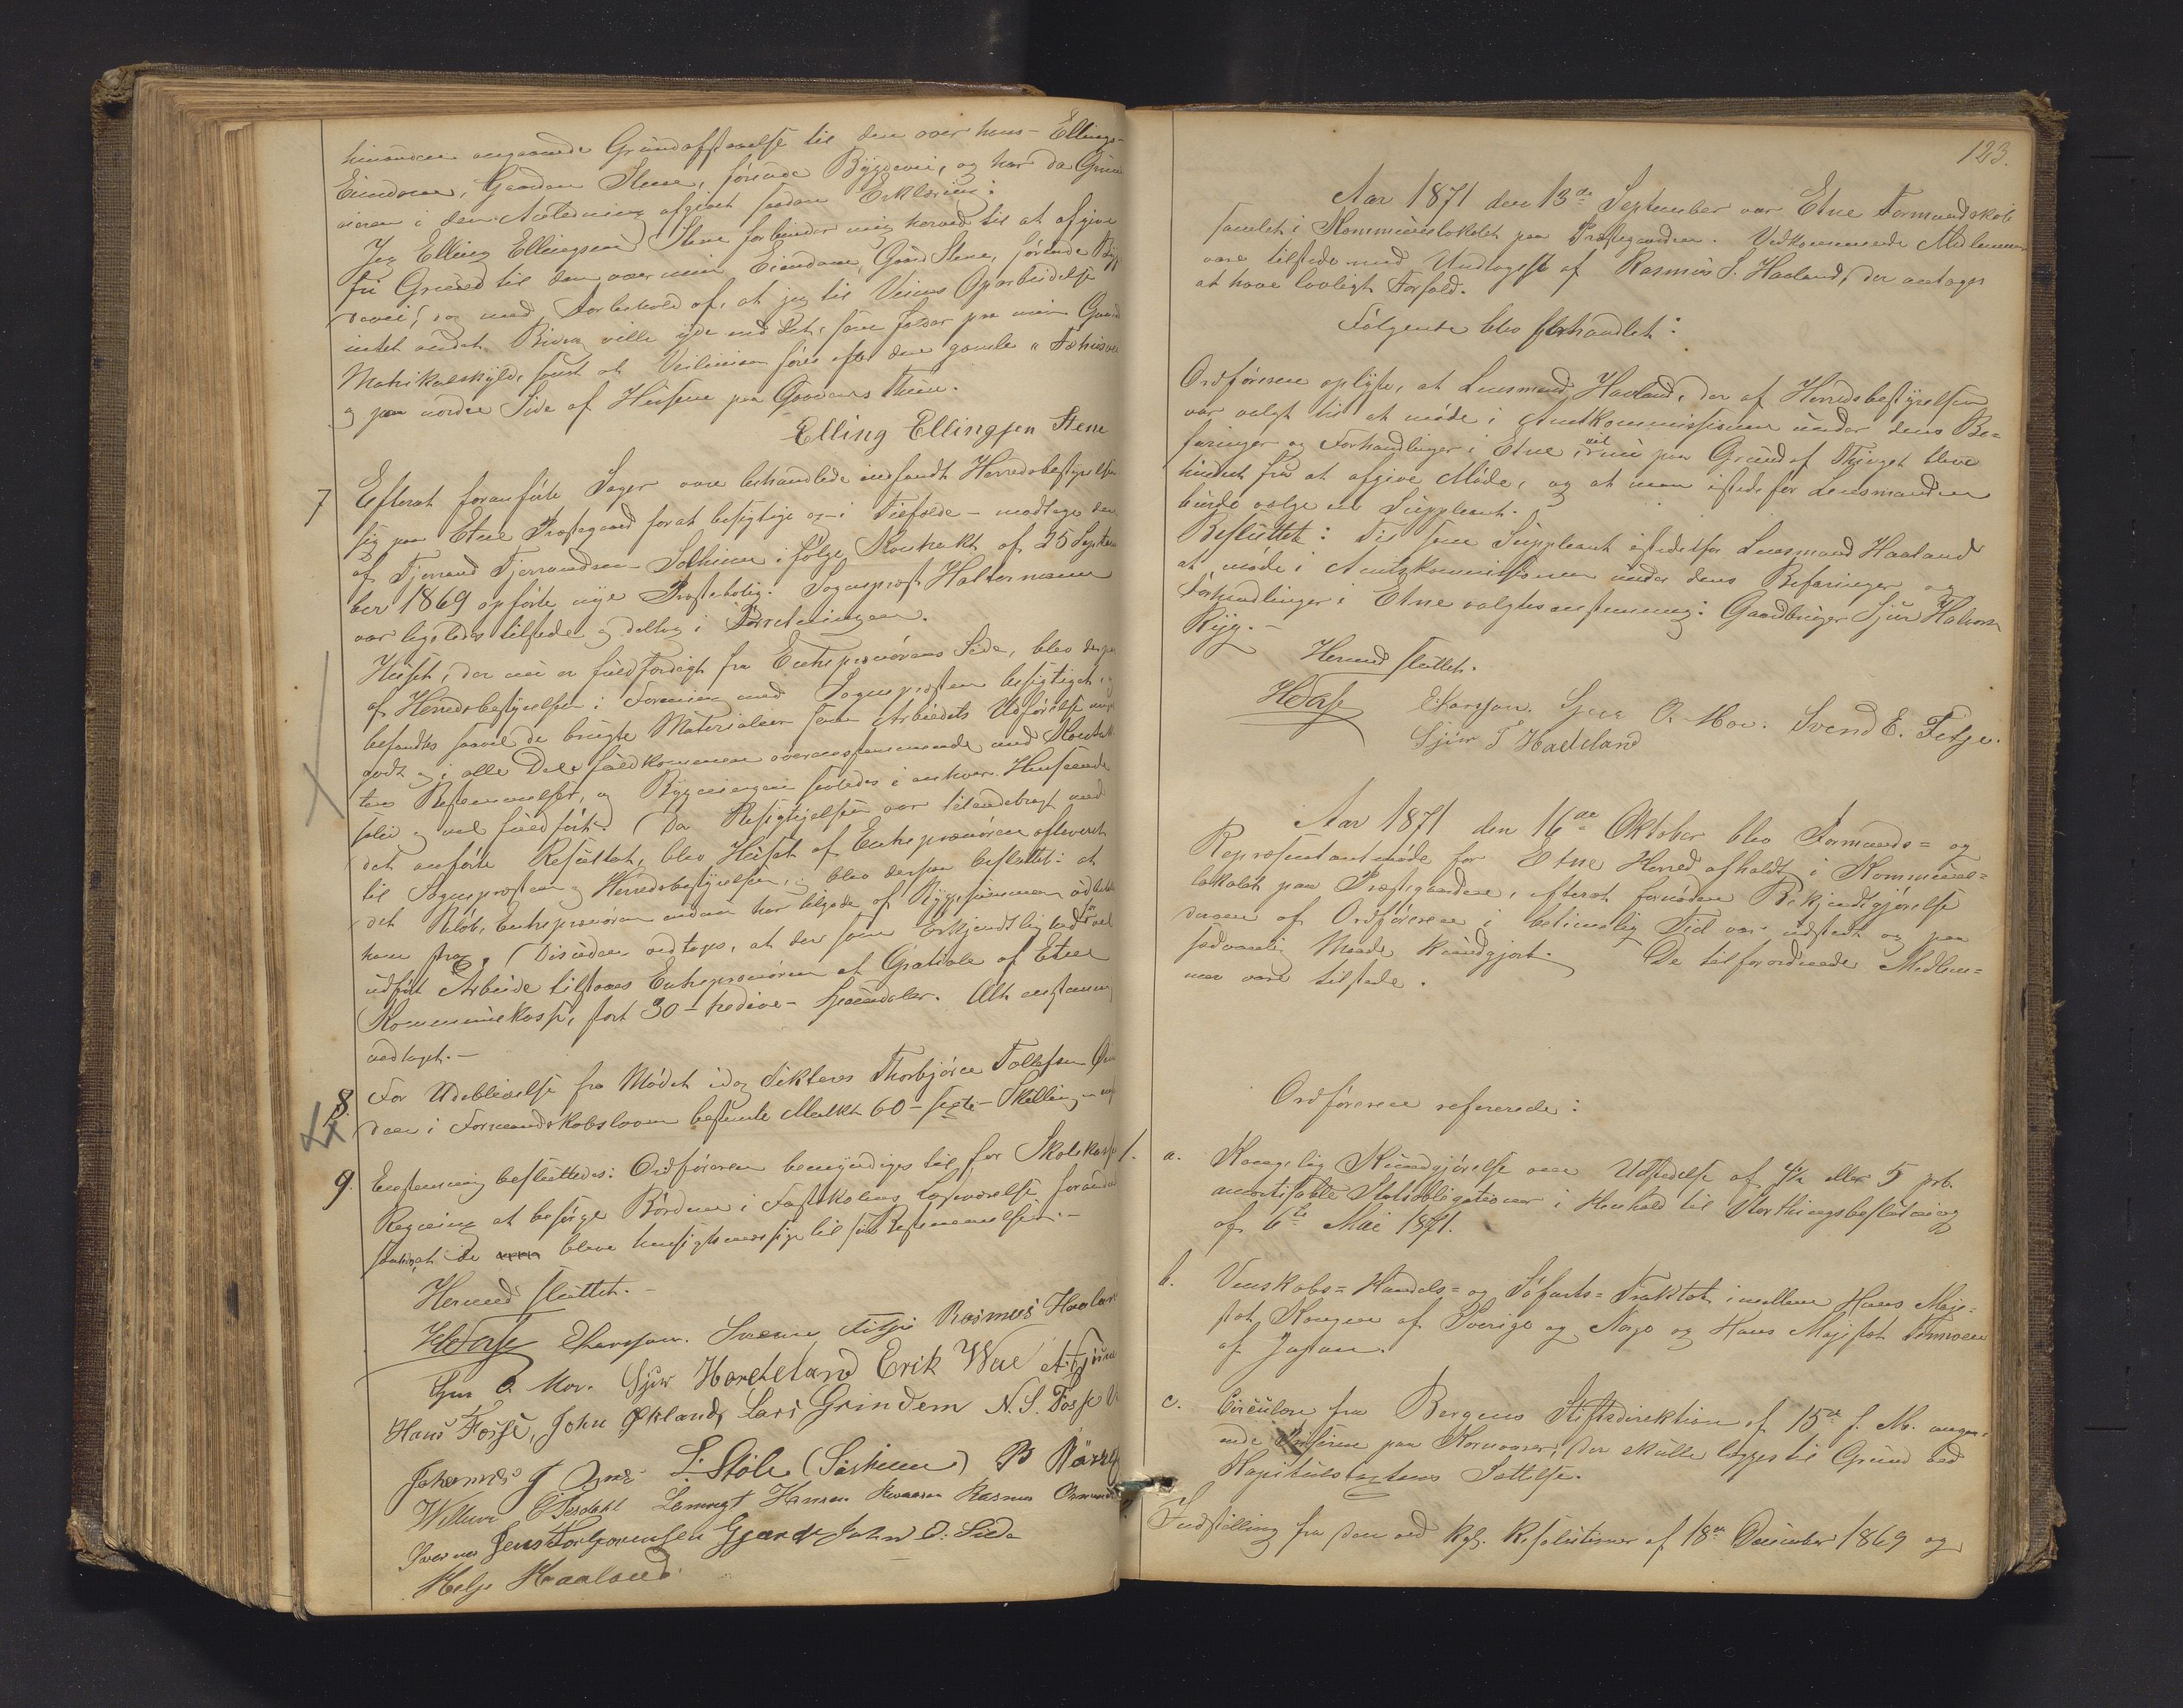 hinanden angaaende Grundafstaaelse til den over hans - Ellings -
Eiendom, Gaarden Stene, førende Bygdevei, og har da Grund
eieren i den Anledning afgivet saadan Erklæring:
Jeg Elling Ellingsen Stene forbinder mig herved til at afgive
fri Grund til den over min Eiendom, Gaard Stene, førende Byg
devei, dog med Forbehold af, at jeg til Veiens Oparbeidelse
intet andet Bidrag ville yde end det, som falder paa min Gaards
Matrikulskyld, samt at Veilinien føres efter den gamle "Fæhusvei"
og paa nordre Side af Husene paa Gaarden Stene.
Elling Ellingsen Stene
7 Efterat foranførte Sager vare behandlede indfandt Herredsbestyrelsen
sig paa Etne Præstegaard for at besigtige og - i Tilfælde - modtage den
af Tjerrand Tjerrandsen Solheim i følge Kontrakt af 25 Septem
ber 1869 opførte nye Præstebolig. Sogneprest Haltermann
var ligeledes tilstede og deltog i Forretningen.
Huset, der nu er fuldfærdigt fra Entreprenørens Side, blev derpaa
af Herredsbestyrelsen i Forening med Sognepresten besigtiget, og
befandtes saavel de brugte Materialier som Arbeidets Udførelse
godt og i alle Dele fuldkommen overensstemmende med Kontrak
tens Bestemmelser, og Bygningen saaledes i enhver Henseende
solid og vel fuldført. Da Besigtigelsen var tilendebragt med
det anførte Resultat, blev Huset af Entreprenøren afleveret
til Sognepresten og Herredsbestyrelsen, og blev derpaa besluttet: at
det Beløb, Entreprenøren endnu har tilgode af Byggesummen udbetales
ham strax. Desuden vedtoges, at der som Erkjendtlighed for vel
udført Arbeide tilstaaes Entreprenøren et Gratiale af Etne
Kommunekasse, stort 30 - tredive - Speciedaler. Alt enstemmig
vedtaget. -
8. For Udeblivelse fra Mødet idag dikteres Thorbjørn Tollefsen
den i Formandskabsloven bestemte Mulkt 60 - sexti - Skilling
9. Enstemmig besluttedes: Ordføreren bemyndiges til for Skolekassens
Regning at besørge Bordene i Fastskolens Læseværelse forandret
saaledes at de blive hensigtsmæssige til sin Bestemmelse. -
Hermed sluttet. -
Svend Fitje Rasmus Haaland
Sjur O. Mo. Sjur Hardeland Erik Wae
Hans Fosse, John Økland, Lars Grindem N. S. Fosse
Johannes J. L. Støle (Sørheim)
Rasmus
Jens Torbjørnsen Gjerde John O. Lunde
Helge Haaland
123.
Aar 1871 den 13de September var Etne Formandskab
samlet i Kommunelokalet paa Præstegaarden. Vedkommende Medlemmer
vare tilstede med Undtagelse af Rasmus S. Haaland, der antages
at have lovligt Forfald.
Følgende blev forhandlet:
Ordføreren oplyste, at Lensmand Haaland, der af Herredsbestyrelsen
var valgt til at møde i Amtskommissionen under dens Be=
faringer og Forhandlinger i Etne, vil nu paa Grund af Thinget blive
hindret fra at afgive Møde, og at man istedetfor Lensmanden
burde vælge en Suppleant.
Besluttet: Til som Suppleant istedetfor Lensmand Haaland
at møde i Amtskommissionen under dens Befaringer og
Forhandlinger i Etne valgtes enstemmig: Gaardbruger Sjur Halvorsen
Ryg. -
Hermed sluttet.
Sjur O. Mo. Svend E. Fitje.
Sjur T Hardeland
Aar 1871 den 16de Oktober blev Formands= og
Repræsentantmøde for Etne Herred afholdt i Kommune=
lokalet paa Præstegaarden, efterat fornøden Bekjendtgjørelse
derom af Ordføreren i betimelig Tid var udstedt og paa
sædvanlig Maade kundgjort. De tilforordnede Medlem=
mer vare tilstede.
Ordføreren refererede:
1. a. Kongelig Kundgjørelse om Udstedelse af 4½ eller 5 prC.
amortisable Statsobligationer i Henhold til Storthingsbeslutning
af 6te Mai 1871.
b. Venskabs= Handels= og Søfarts= Traktat imellem Hans Maje=
stæt Kongen af Sverige og Norge og Hans Majestæt Tennoen
af Japan.
c. Circulære fra Bergens Stiftsdirektion af 15de f. M. angaa=
ende Priserne paa Kornvarer, der skulle lægges til Grund ved
Kapitelstaxtens Sættelse.
Indstilling fra den ved kgl. Resolutioner af 18de December 1869 og